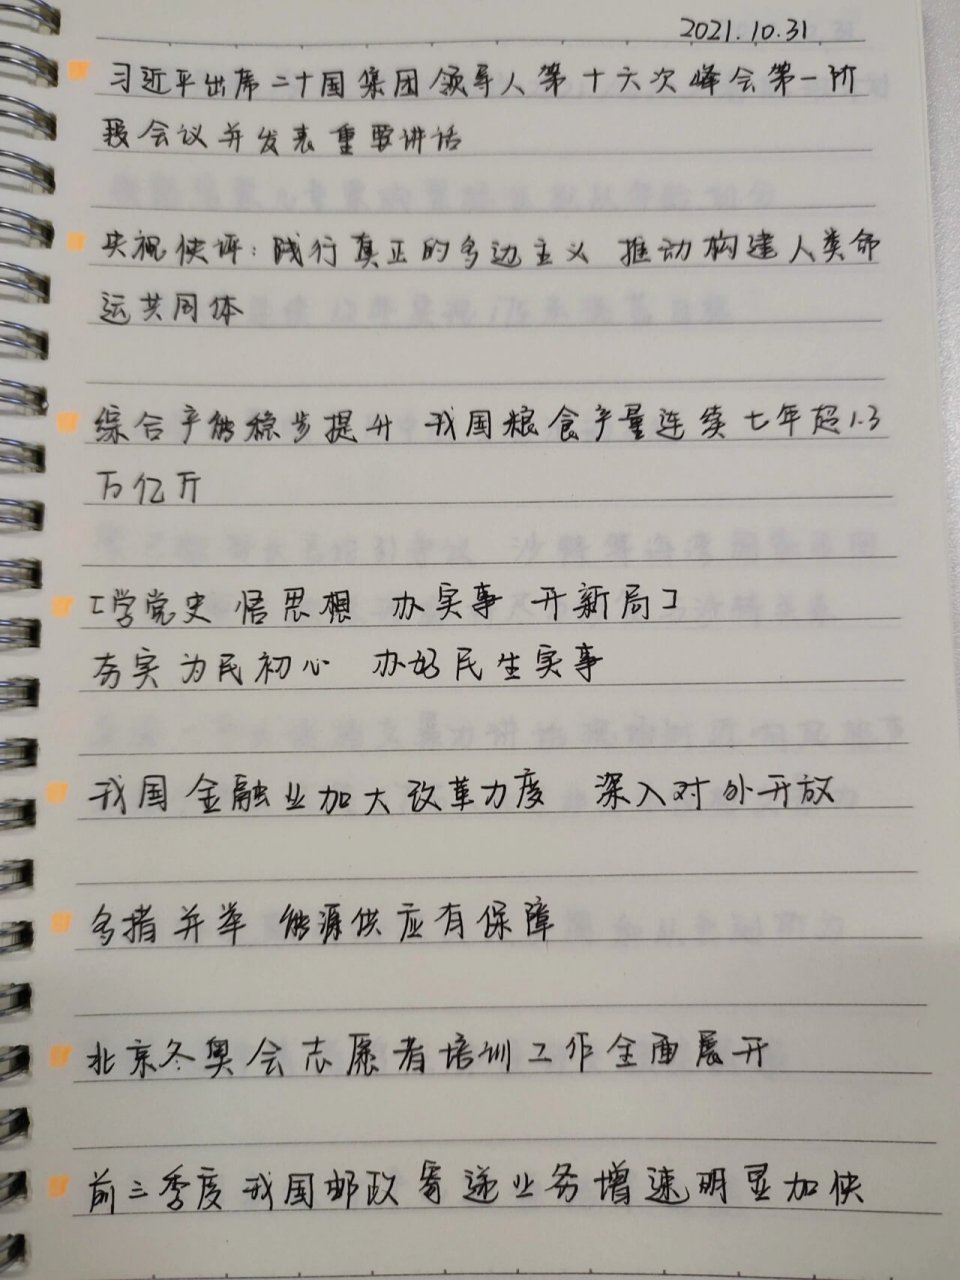 2021.10.31
习近平出席二十国集团领导人第十六次峰会第一阶
段会议并发表重要讲话
央视快评:践行真正的多边主义 推动构建人类命
运共同体
综合产能稳步提升 我国粮食产量连续七年超1.3
万亿斤
[学党史 悟思想 办实事 开新局]
夯实为民初心 办好民生实事
我国金融业加大改革力度 深入对外开放
多措并举 能源供应有保障
北京冬奥会志愿者培训工作全面展开
前三季度我国邮政寄递业务增速明显加快